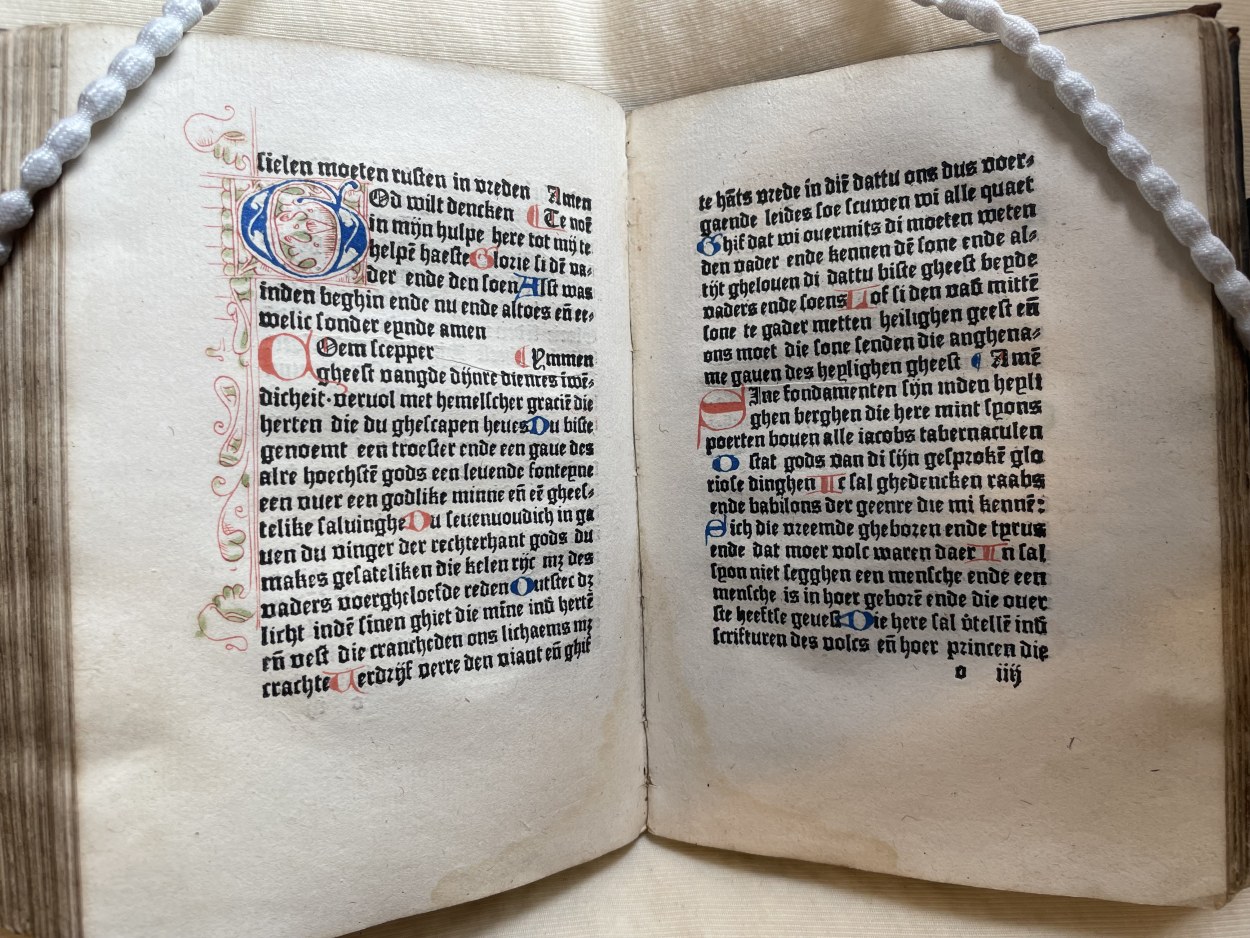 sielen moeten rusten in vreden Amen
GOd wilt dencken Te not
in mijn hulpe here tot mȳ te
helpē haeste Glorie si dē va⸗
der ende den soen Alst was
inden beghin ende nu ende altoes eñ ee⸗
welic sonder eynde amen
COem scepper Ymmen
gheest vangde dijnre dienres īwē⸗
dicheit·vervol met hemelscher graciē die
herten die du ghescapen heves Du biste
genoemt een troester ende een gave des
alre hoechstē gods een levende fonteyne
een vuer een godlike minne eñ eē ghees⸗
telike salvinghe Du sevenvoudich in ga
ven du vinger der rechterhant gods du
makes gesateliken die kelen rijc mꝫ des
vaders voerghelofde reden Ontstec dꝫ
licht indē sinen ghiet die mīne inđ hertē
eñ vest die crancheden ons lichaems mꝫ
crachte Verdrijf verre den viant eñ ghif
te hāts vrede in diē dattu ons dus voer⸗
gaende leides soe scuwen wi alle quaet
Ghif dat wi overmits di moeten weten
den vader ende kennen dē sone ende al⸗
tijt gheloven di dattu biste gheest beyde
vaders ende soens Lof si den vađ mittē
sone te gader metten heilighen geest eñ
ons moet die sone senden die anghena⸗
me gaven des heylighen gheest Amē
SIne fondamenten sijn inden heyli
ghen berghen die here mint syons
poerten boven alle iacobs tabernaculen
O stat gods van di sijn gesprokē glo
riose dinghen Ic sal ghedencken raabs
ende babilons der geenre die mi kennē:
Sich die vreemde gheboren ende tyrus
ende dat moer volc waren daer En sal
syon niet segghen een mensche ende een
mensche is in hoer geborē ende die over
ste heeftse gevest Die here sal v̄tellē inđ
scrifturen des volcs eñ hoer princen die
o iiij